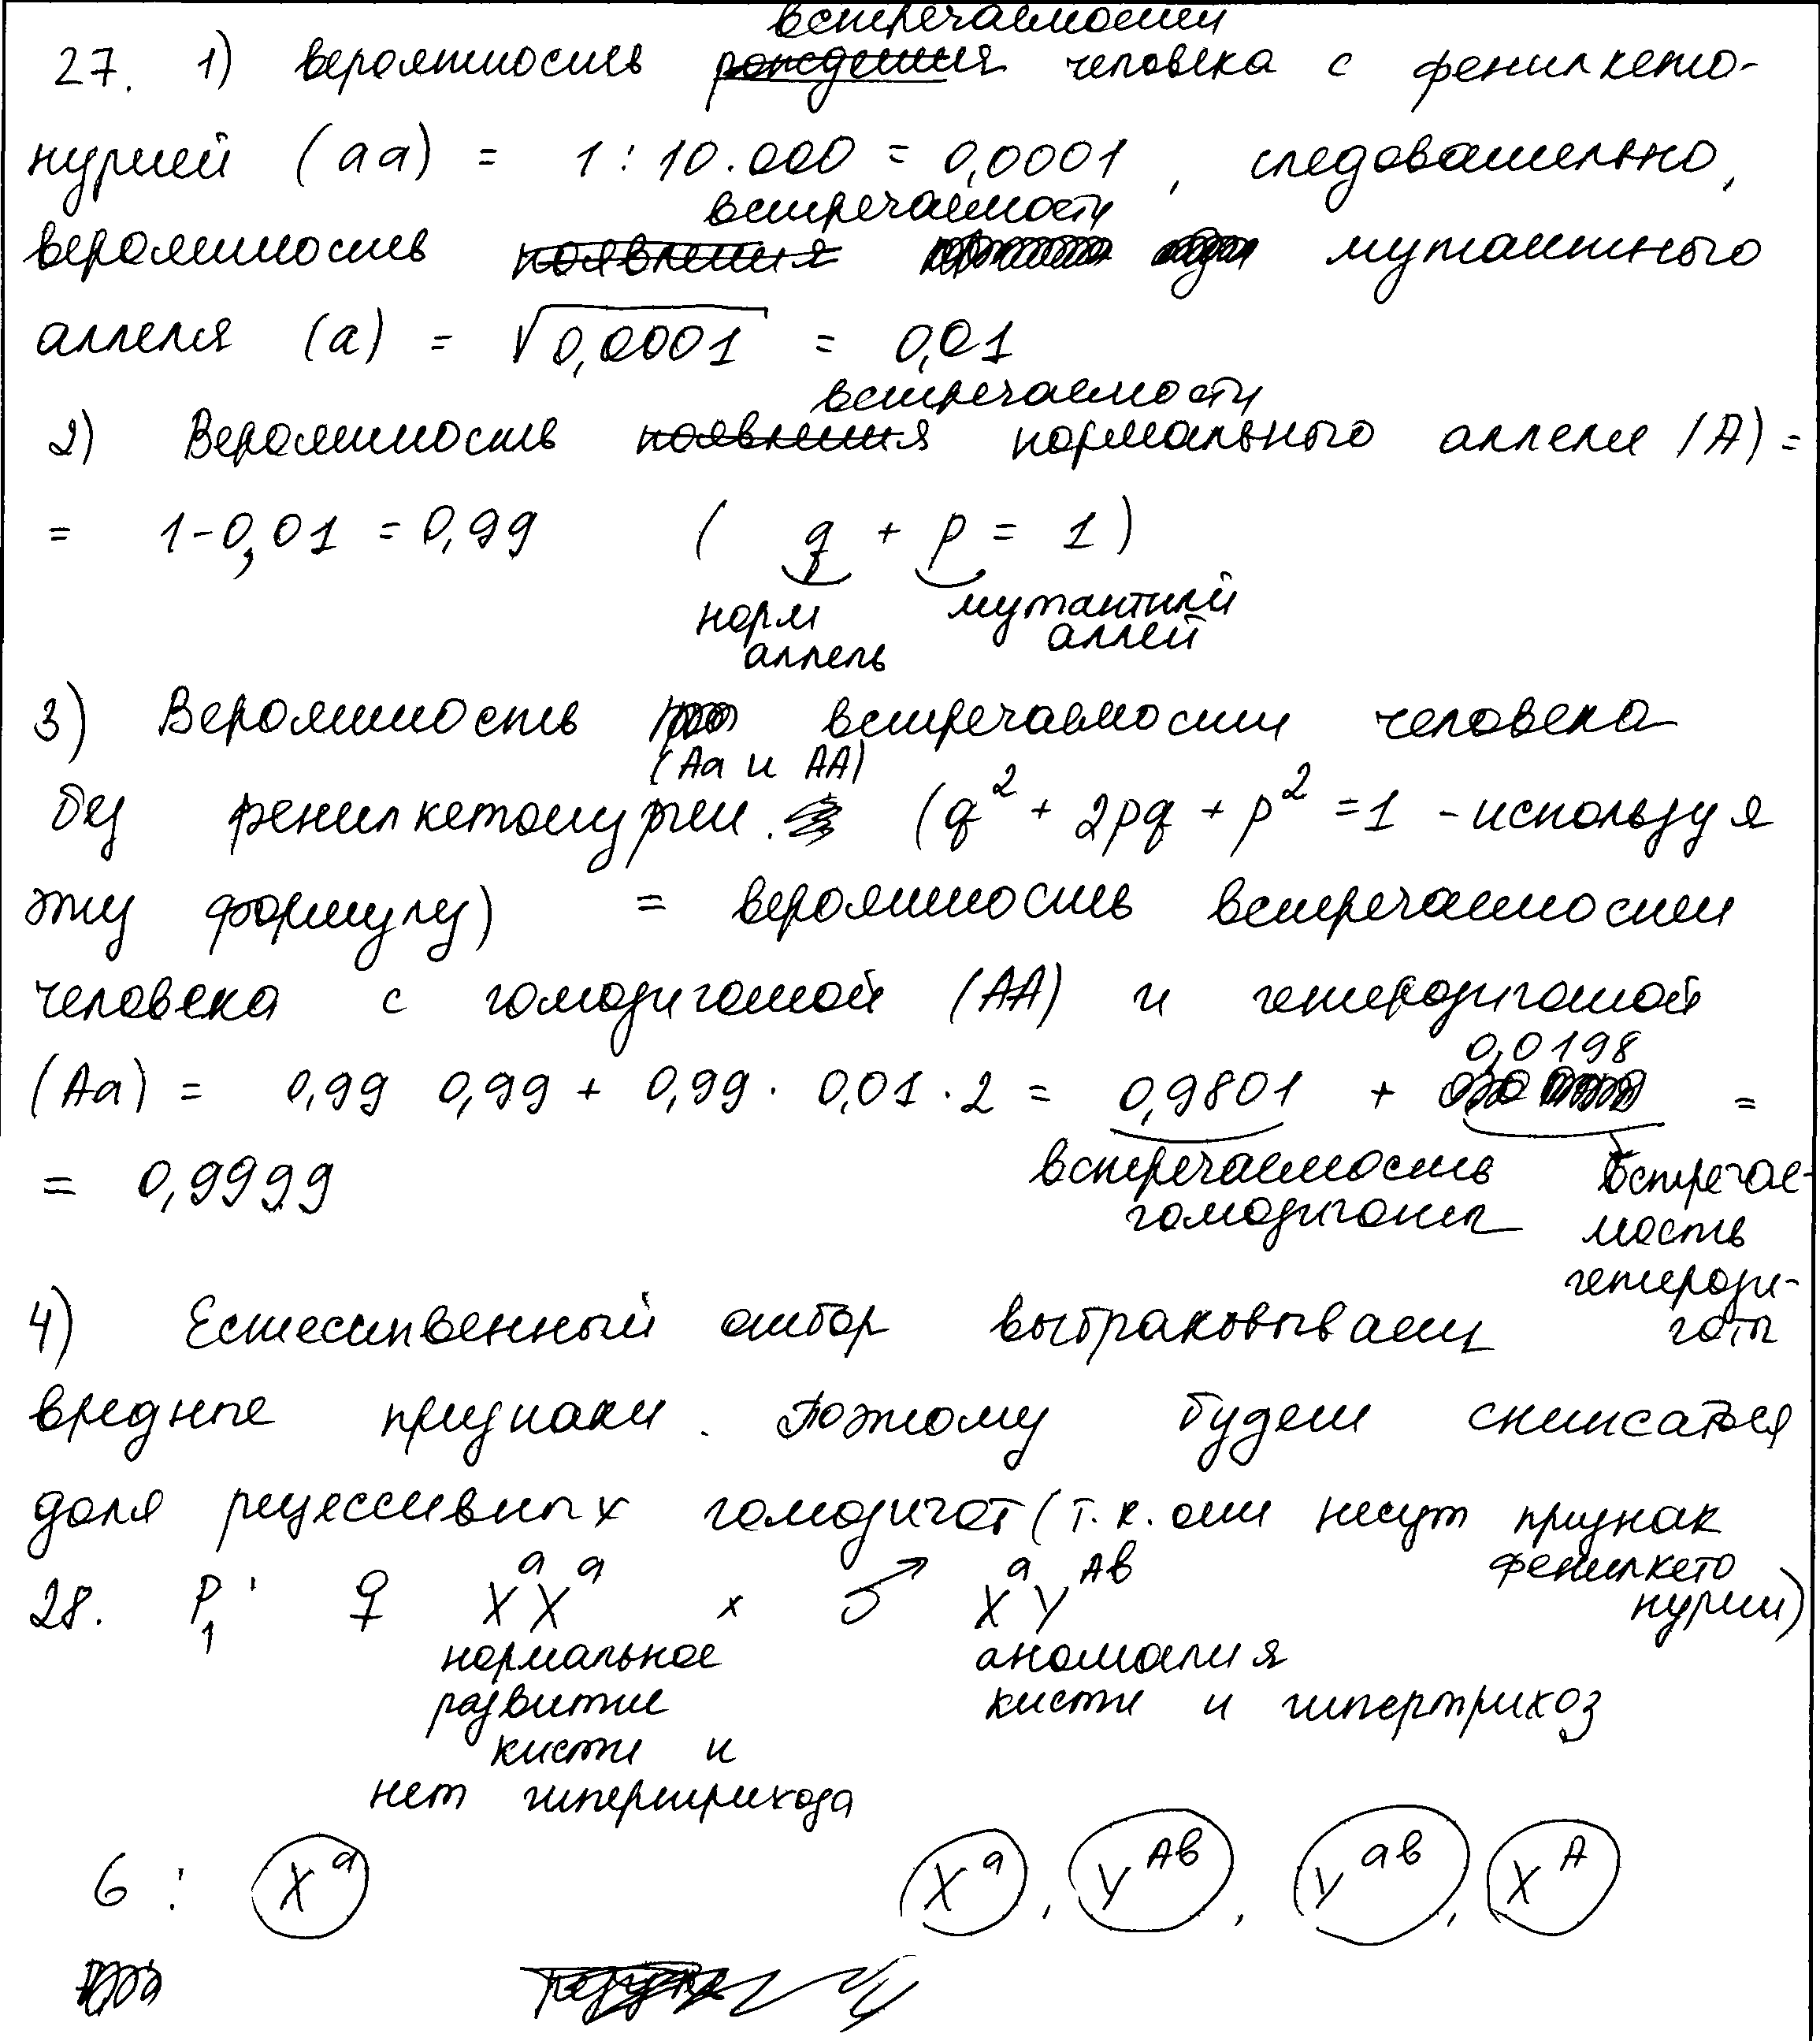 встречаемости
27. 1) вероятность рождения человека с фенилкето-
нурией (аа) = 1 : 10.000 = 0,0001, следовательно,
встречаемости
вероятность появления мутантного
аллеля (а) = √0,0001 = 0,01
встречаемости
2) Вероятность появления нормального аллеля (А) =
= 1-0,01 = 0,99 ( q + p = 1 )
норм аллель мутантный аллей
3) Вероятность встречаемости человека
(Аа и АА)
без фенилкетонурии. (q² + 2pq + p² = 1 - используя
эту формулу) = вероятность встречаемости
человека с гомозиготой (АА) и гетерозиготой
0,0198
(Аа) = 0,99 0,99 + 0,99 · 0,01 · 2 = 0,9801 + =
= 0,9999 встречаемость гомозиготы встречае-
мость
гетерози-
4) Естественный отбор выбраковывает готы
вредные признаки. Поэтому будет снижаться
доля рецессивных гомозигот (т.к. они несут признак
фенилкето
нурии)
28. P₁: ♀ XᵃXᵃ x ♂ XᵃYᴬᵇ
нормальное аномалия
развитие кисти и гипертрихоз
кисти и
нет гипертрихоза
G : Xᵃ Xᵃ, Yᴬᵇ, Yᵃᵇ, Xᴬ